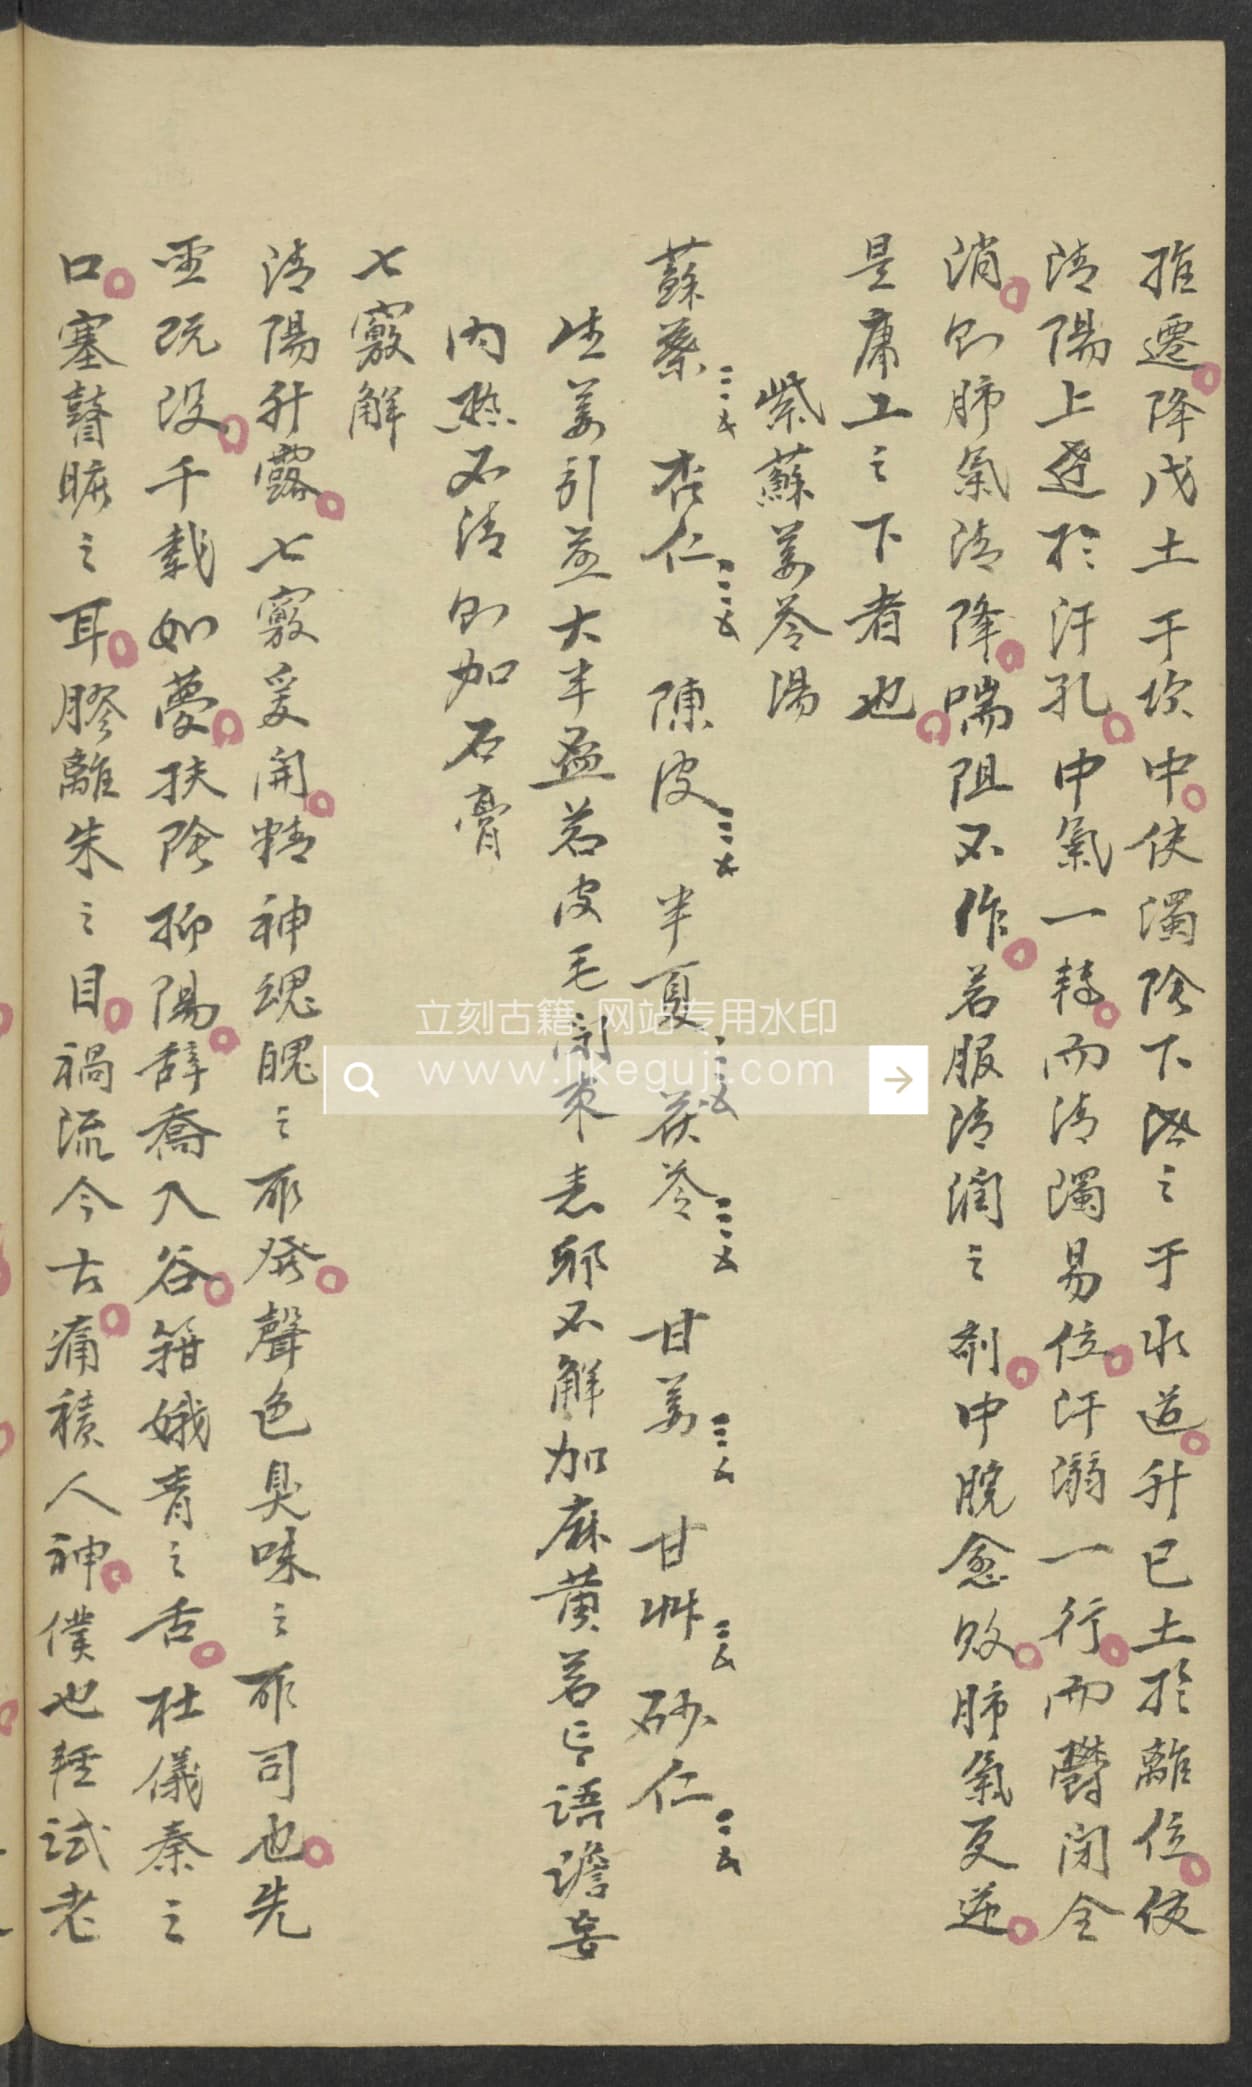 推遷降戊土于坎中使濁陰下泄之于水道升已土於離位使
清陽上達於汗孔中氣一轉而清濁易位汗溺一行而鬱閉全
消則肺氣清降喘阻不作若服清潤之劑中脘愈敗肺氣更逆
是庸工之下者也
紫蘇姜苓湯
蘇葉三錢 杏仁三錢 陳皮三錢 半夏三錢 茯苓三錢 甘姜三錢 甘艸二錢 砂仁二錢
生姜引煎大半盃若皮毛閉束表邪不解加麻黄若 語譫妄
内熱不清則加石膏
七竅解
清陽升露七竅爰開精神魂魄之所發聲色臭味之所司也先
聖既沒千載如夢扶陰抑陽辞喬入谷箝娥青之舌杜儀秦之
口塞瞽曠之耳膠離朱之目禍流今古痛積人神僕也輕試老
立刻古籍 网站专用水印
www.likeguji.com